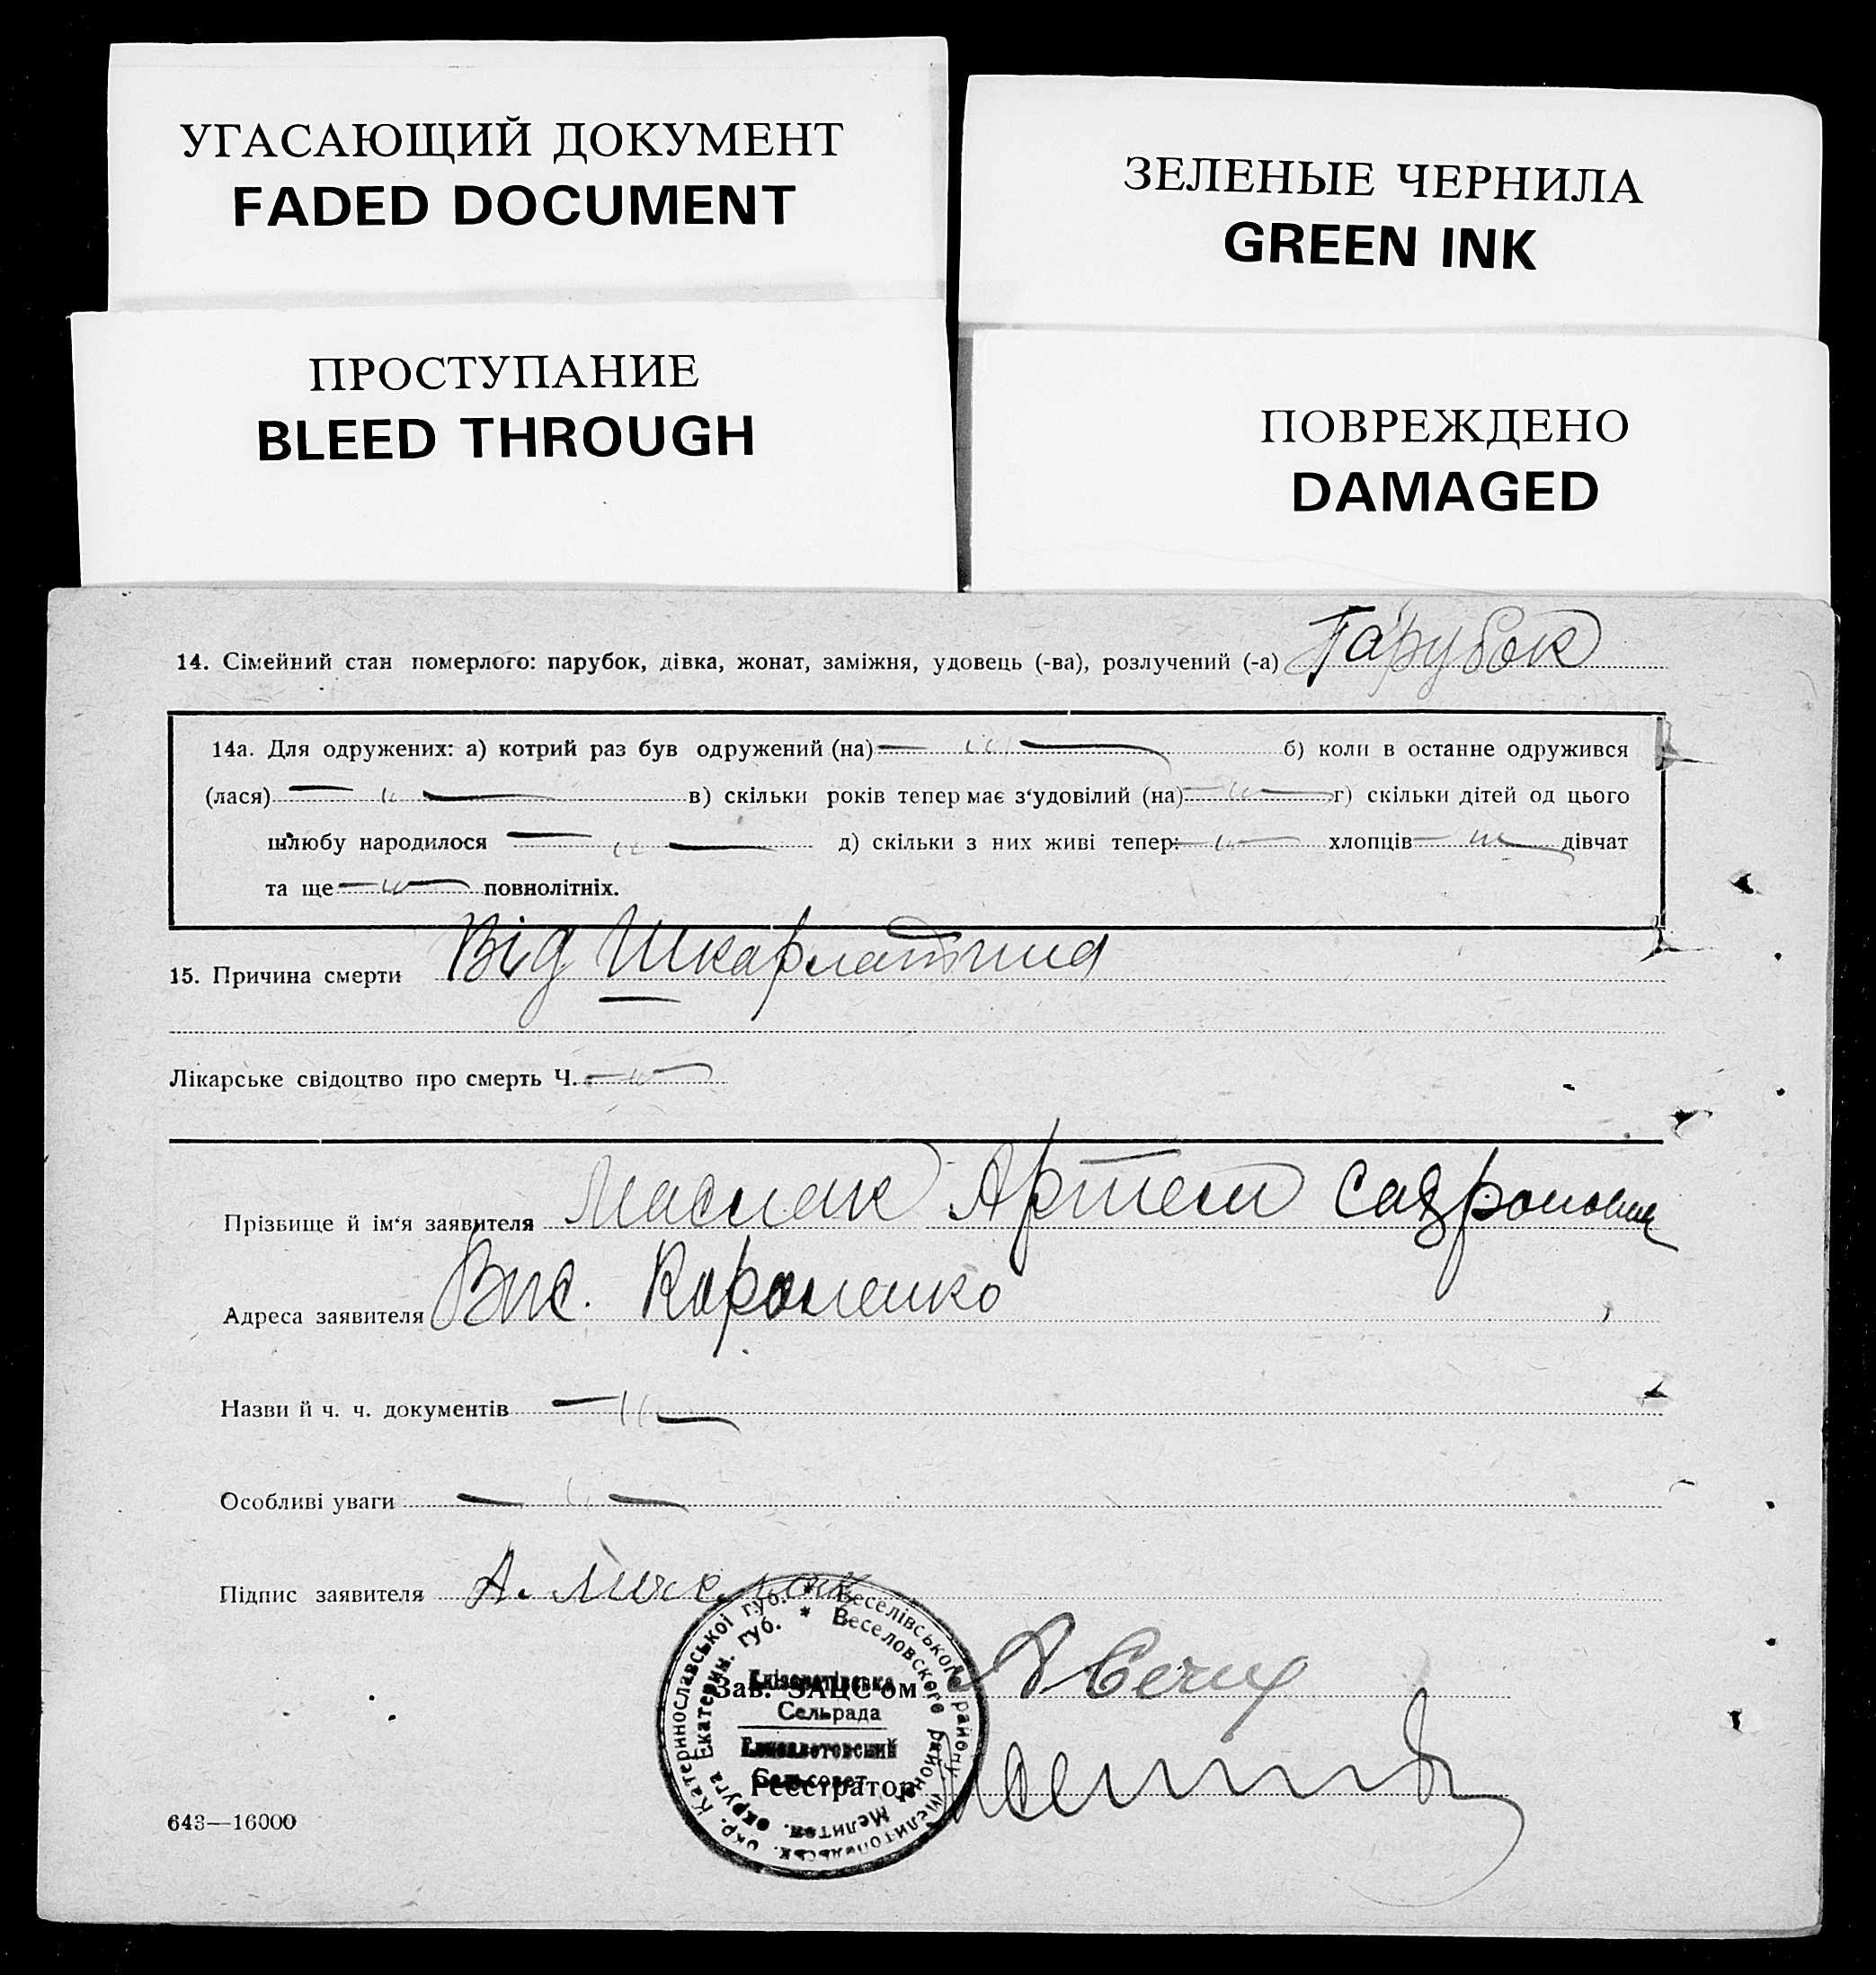 УГАСАЮЩИЙ ДОКУМЕНТ
FADED DOCUMENT
ЗЕЛЕНЫЕ ЧЕРНИЛА
GREEN INK
ПРОСТУПАНИЕ
BLEED THROUGH
ПОВРЕЖДЕНО
DAMAGED
14. Сімейний стан померлого: парубок, дівка, жонат, заміжня, удовець (-ва), розлучений (-а) Парубок
14а. Для одружених: а) котрий раз був одружений (на) — „ — б) коли в останне одружився
(лася) — „ — в) скільки років тепер має з‘удовілий (на) — „ — г) скільки дітей од цього
шлюбу народилося — „ — д) скільки з них живі тепер: — „ — хлопців — „ — дівчат
та ще — „ — повнолітніх.
15. Причина смерти Від Шкарлатини
Лікарське свідоцтво про смерть Ч. — „ —
Прізвище й ім‘я заявителя Маслак Артем
Адреса заявителя Вис. Короленко
Назви й ч. ч. документів — „ —
Особливі уваги — „ —
Підпис заявителя А.
Зав. ЗАЦС‘ом
Реєстратор
окр. Катеринославської губ. * Веселівського району Мелитопольськ.
округа Екатерин. губ. * Веселовского района Мелитоп.
Єлізаветівська
Сельрада
Елисаветовский
Сельсовет
643—16000